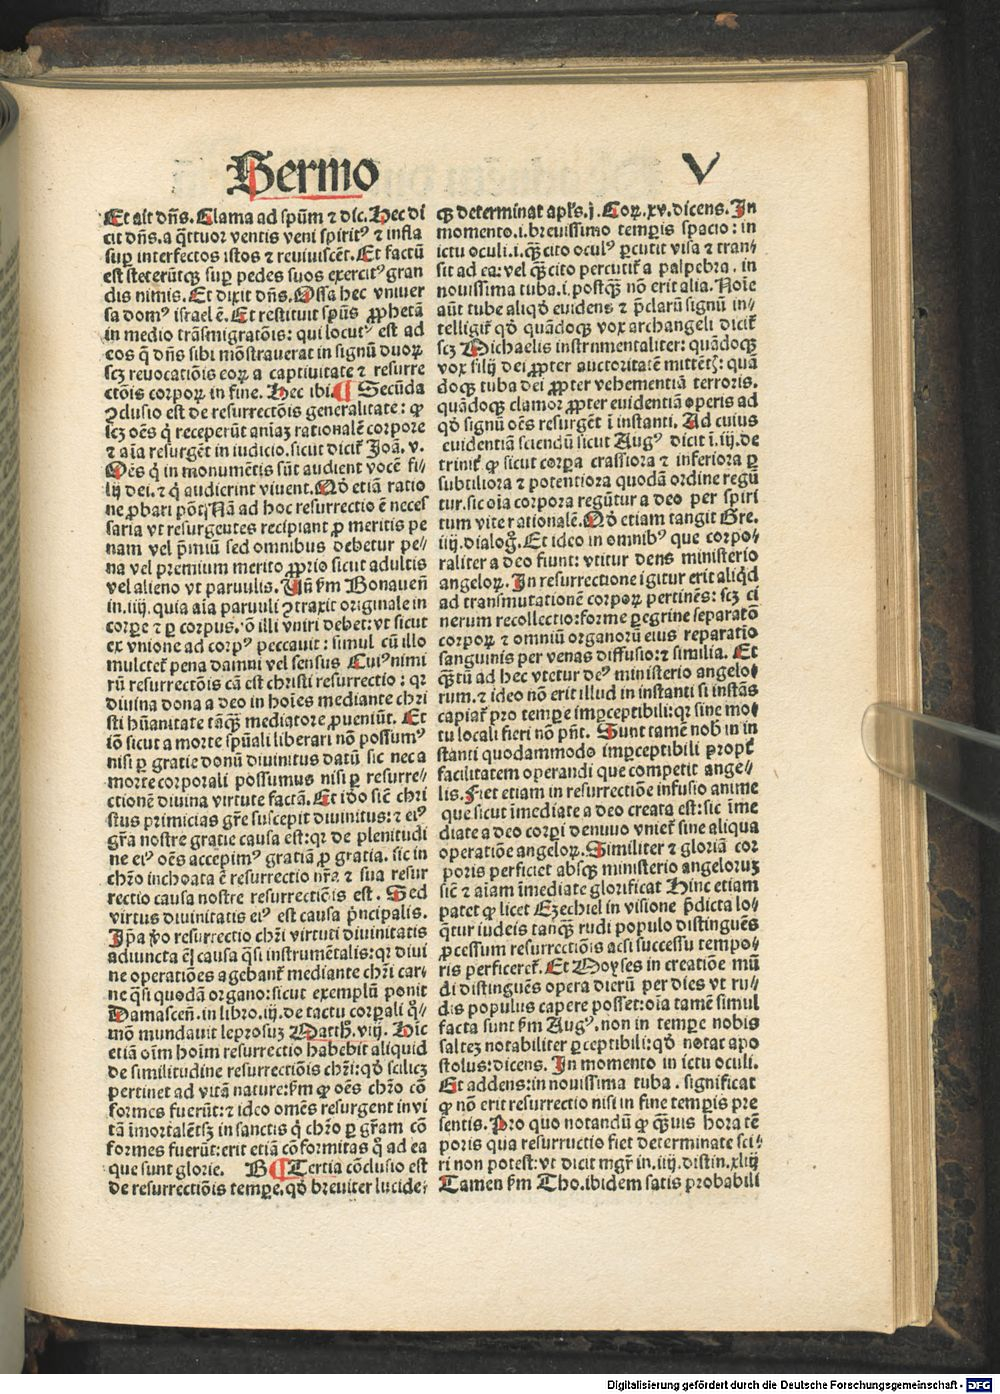 Sermo V
Et ait dñs. Clama ad spūm ⁊ dic. Hec di
cit dñs. a q̄ttuor ventis veni spiritꝰ ⁊ insla
suꝑ interfectos istos ⁊ reuiuiscēt. Et factū
est steterūtqꝫ suꝑ pedes suos exercitꝰ gran
dis nimis. Et dixit dñs. Ossa hec vniuer
sa domꝰ israel ē. Et restituit spūs ꝓphetā
in medio trāsmigratōis: qui locutꝰ est ad
eos q̄ dñs sibi mōstrauerat in signū duoꝝ
scꝫ reuocatiōis eoꝝ a captiuitate ⁊ resurre
ctōis corpoꝝ in fine. Hec ibi. ¶ Secūda
ꝯclusio est de resurrectōis generalitate: ꝙ
scꝫ oēs q̄ receperūt aniaꝫ rationalē corpore
⁊ aīa resurgēt in iudicio. sicut dicit̄ Joā. v.
Oēs q̄ in monumētis sūt audient vocē fi⸗
lij dei. ⁊ q̄ audierint viuent. Qd̄ etiā ratio
ne ꝓbari pōt. Nā ad hoc resurrectio ē neces
saria vt resurgentes recipiant ꝓ meritis pe
nam vel p̄miū sed omnibus debetur pe⸗
na vel premium merito ꝓprio sicut adultis
vel alieno vt paruulis. Vñ ẜm Bonauen̄
in. iiij. quia aīa paruuli ꝯtraxit originale in
corꝑe ⁊ ꝑ corpus. ō illi vniri debet: vt sicut
ex vnione ad corpꝰ peccauit: simul cū illo
mulctet̄ pena damni vel sensus Cuiꝰnimi
rū resurrectōis cā est christi resurrectio: qꝛ
diuina dona a deo in hoīes mediante chri
sti hūanitate tāqꝫ mediatore ꝓueniūt. Et
iō sicut a morte spūali liberari nō possumꝰ
nisi ꝑ gratie donū diuinitus datū sic nec a
morte corporali possumus nisi ꝑ resurre⸗
ctionē diuina virtute factā. Et idō sic̄ chri
stus primicias gr̄e suscepit diuinitus: ⁊ eiꝰ
gr̄a nostre gratie causa est: qꝛ de plenitudi
ne eiꝰ oēs accepimꝰ gratiā ꝓ gratia. sic in
chr̄o inchoata ē resurrectio nr̄a ⁊ sua resur
rectio causa nostre resurrectiōis est. Sed
virtus diuinitatis eiꝰ est causa p̄ncipalis.
Ip̄a v̄o resurrectio chr̄i virtuti diuinitatis
adiuncta ē causa q̄si instrumētalis: qꝛ diui
ne operatiōes agebant̄ mediante chr̄i car⸗
ne q̄si quodā organo: sicut exemplū ponit
Damascen̄. in libro. iij. de tactu corꝑali q̊⸗
mō mundauit leprosuꝫ Matth̄. viij. Hic
etiā oīm hoīm resurrectio habebit aliquid
de similitudine resurrectiōis chr̄i: qd̄ scilicꝫ
pertinet ad vitā nature: ẜm ꝙ oēs chr̄o cō
formes fuerūt: ⁊ ideo omēs resurgent in vi
tā īmortalē tsꝫ in sanctis q̄ chr̄o ꝑ gr̄am cō
formes fuerūt: erit etiā cōformitas q̄ ad ea
que sunt glorie. B ¶ Tertia cōclusio est
de resurrectiōis tempe. qd̄ breuiter lucide⸗
qꝫ determinat apl̄s. j. Coꝝ. xv. dicens. In
momento. i. breuissimo temꝑis spacio: in
ictu oculi. i. qꝫcito oculꝰ ꝑcutit visa ⁊ tran⸗
sit ad ea: vel qꝫcito percutit̄ a palpebra. in
nouissima tuba. i. postqꝫ nō erit alia. Noīe
aūt tube aliqd̄ euidens ⁊ p̄clarū signū in⸗
telligit̄ qd̄ quādoqꝫ vox archangeli dicit̄
scꝫ Michaelis instrumentaliter: quādoqꝫ
vox filij dei ꝓpter auctoritatē mittētꝭ: quā
doqꝫ tuba dei ꝓpter vehementiā terroris.
quādoqꝫ clamor ꝓpter euidentiā operis ad
qd̄ signū oēs resurgēt ī instanti. Ad cuius
euidentiā sciendū sicut Augꝰ dicit ī. iij. de
trinit̄. ꝙ sicut corꝑa crassiora ⁊ inferiora ꝑ
subtiliora ⁊ potentiora quodā ordine regū
tur. sic oīa corpora regūtur a deo per spiri
tum vite rationalē. Qd̄ etiam tangit Gre.
iiij. dialog̊. Et ideo in omnibꝰ que corpo⸗
raliter a deo fiunt: vtitur deus ministerio
angeloꝝ. In resurrectione igitur erit aliqd̄
ad transmutationē corpoꝝ pertinēs: scꝫ ci
nerum recollectio: forme ꝑegrine separatō
corpoꝝ ⁊ omniū organorū eius reparatio
sanguinis per venas diffusio: ⁊ similia. Et
qꝫtū ad hec vtetur deꝰ ministerio angelo⸗
rum. ⁊ ideo nō erit illud in instanti si instās
capiat̄ pro tempe imꝑceptibili: qꝛ sine mo⸗
tu locali fieri nō pn̄t. Sunt tamē nob̄ in in
stanti quodammodo imꝑceptibili ꝓpt̄
facilitatem operandi que competit ange⸗
lis. Fiet etiam in resurrectiōe infusio anime
que sicut īmediate a deo creata est: sic īme
diate a deo corꝑi denuuo vniet̄ sine aliqua
operatiōe angeloꝝ. Similiter ⁊ gloriā cor
poris perficiet absqꝫ ministerio angeloruꝫ
sic̄ ⁊ aīam īmediate glorificat Hinc etiam
patet ꝙ licet Ezechiel in visione p̄dicta lo⸗
q̄tur iudeis tanqꝫ rudi populo distinguēs
ꝓcessum resurrectiōis acsi successu tempo⸗
ris perficeret̄. Et Moyses in creatiōe mū
di distinguēs opera dierū per dies vt ru⸗
dis populus capere posset: oīa tamē simul
facta sunt ẜm Augꝰ. non in tempe nobis
saltez notabiliter ꝑceptibili: qd̄ notat apo
stolus: dicens. In momento in ictu oculi.
Et addens: in nouissima tuba. significat
ꝙ nō erit resurrectio nisi in fine temꝑis pre
sentis. Pro quo notandū ꝙ qꝫuis hora tē
poris qua resurructio fiet determinate sci⸗
ri non potest: vt dicit mgr̄ in. iiij. distin. xliij
Tamen ẜm Tho. ibidem satis probabili
Digitalisierung gefördert durch die Deutsche Forschungsgemeinschaft - DFG